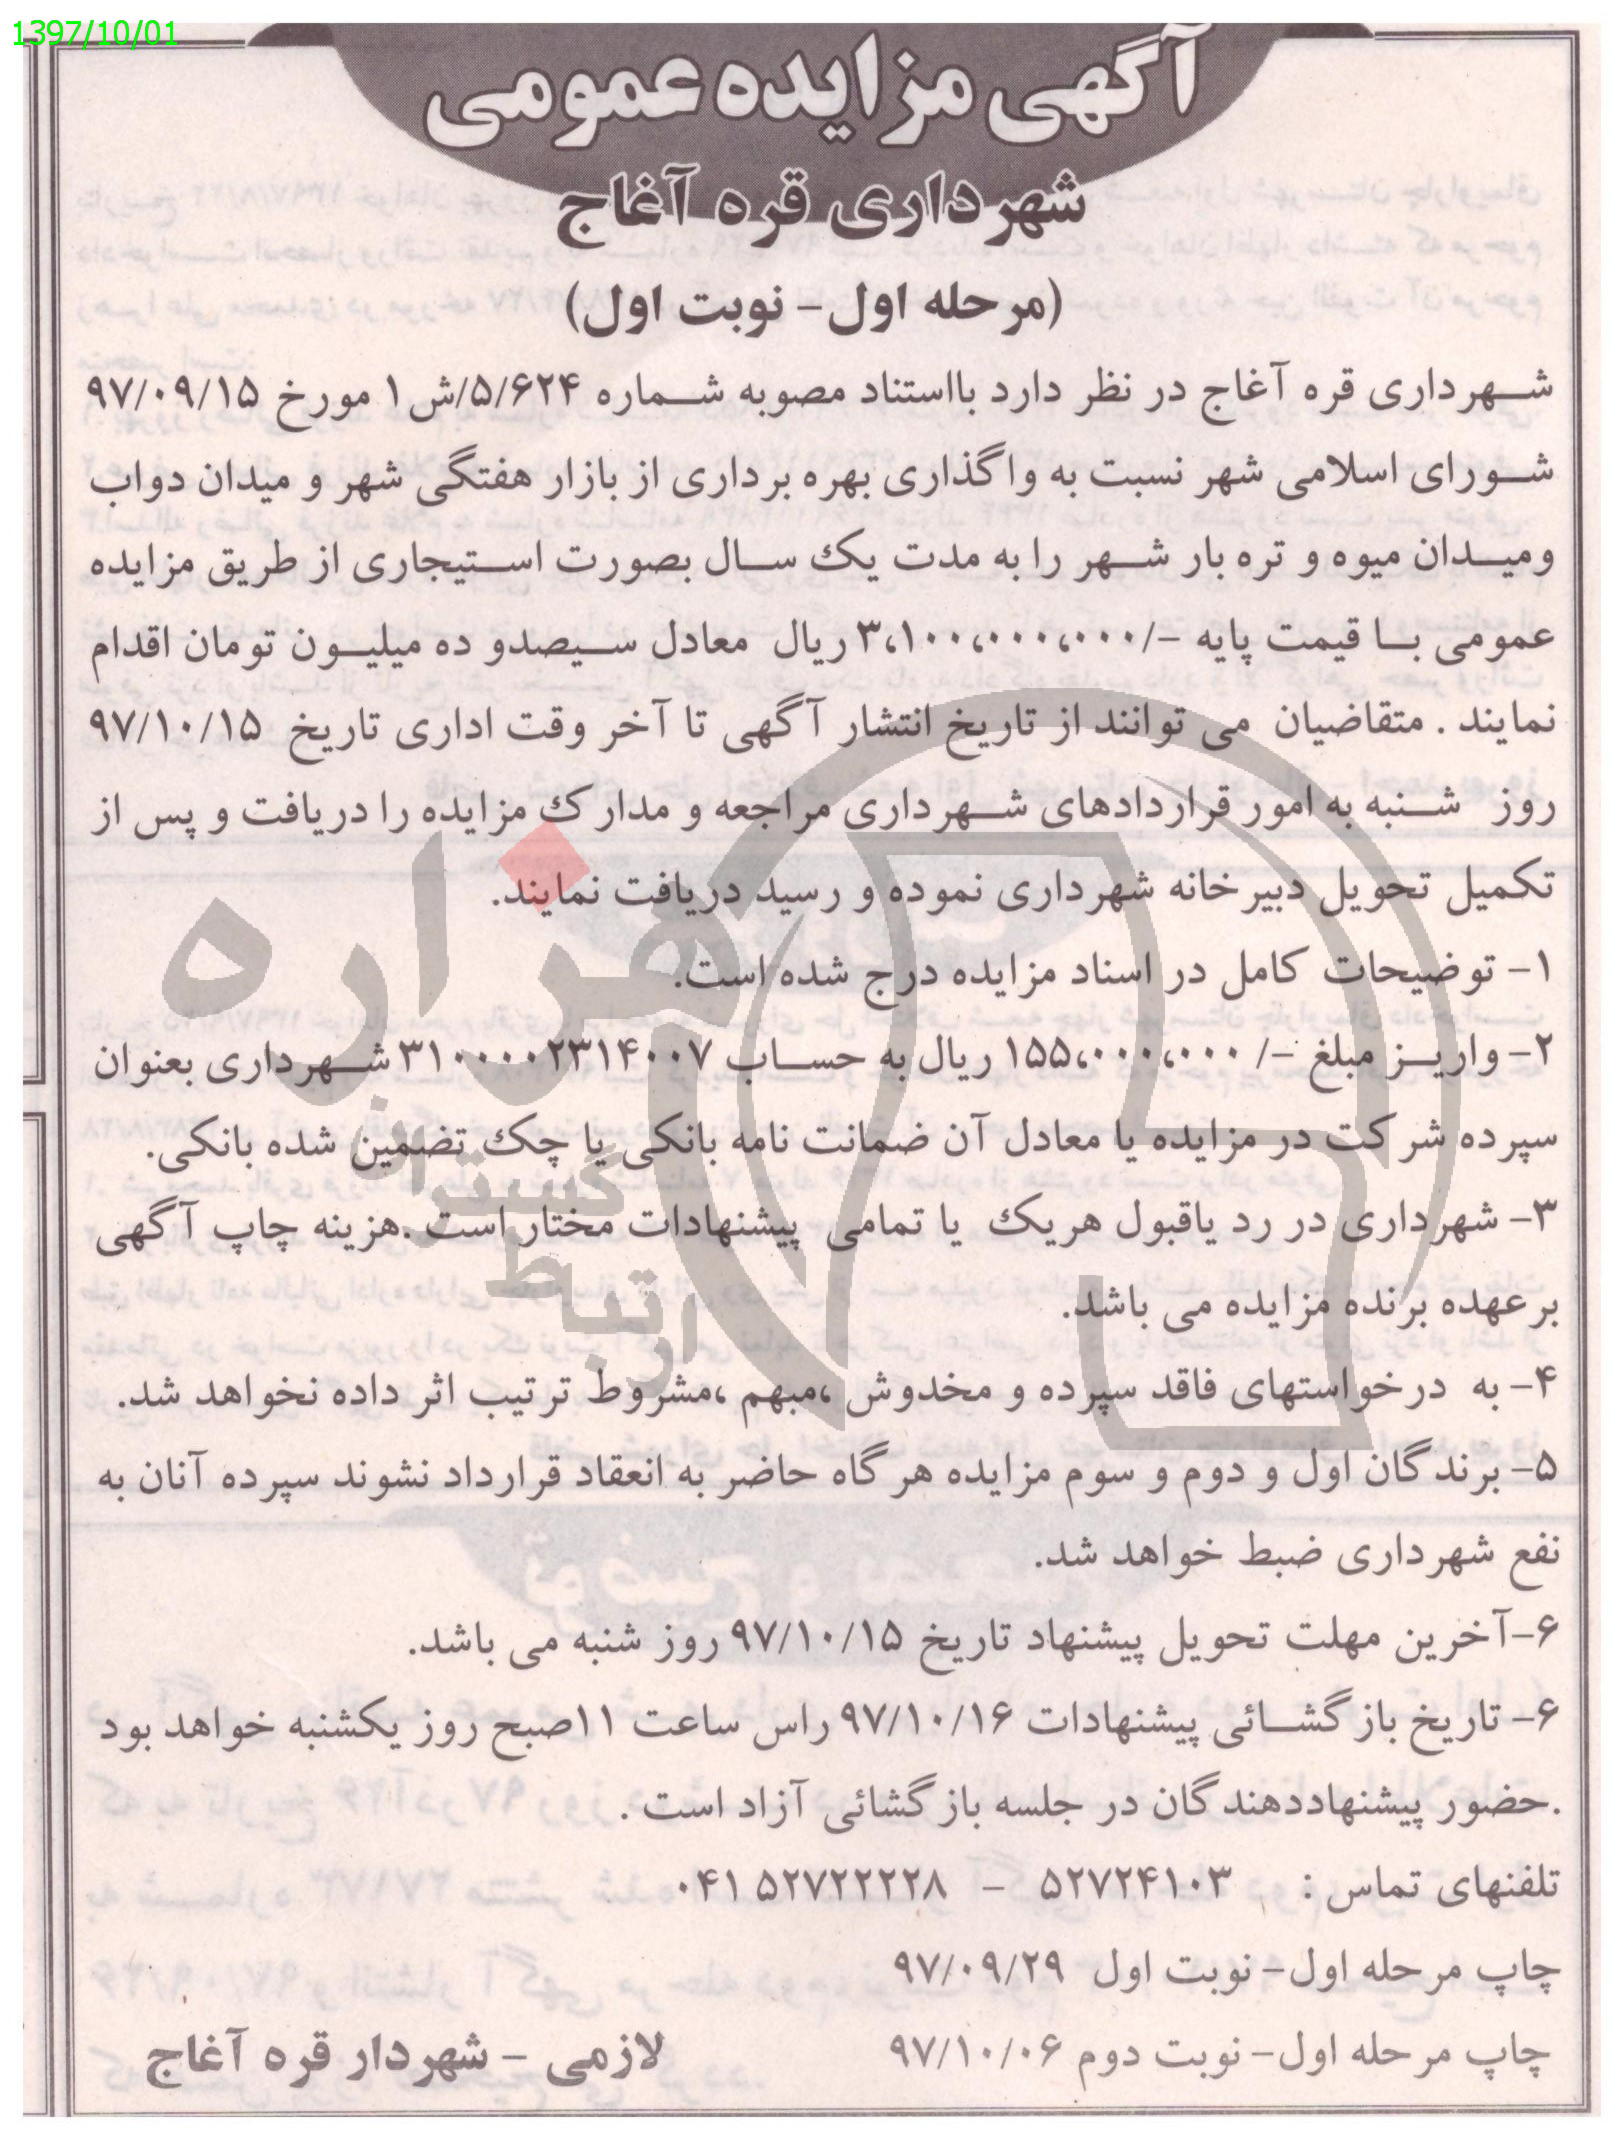 1397/10/01
آگهی مزایده عمومی
شهرداری قره آغاج
(مرحله اول- نوبت اول)
شهرداری قره آغاج در نظر دارد بااستناد مصوبه شماره ۵/۶۲۴/ش۱ مورخ ۹۷/۰۹/۱۵
شورای اسلامی شهر نسبت به واگذاری بهره برداری از بازار هفتگی شهر و میدان دواب
ومیدان میوه و تره بار شهر را به مدت یک سال بصورت استیجاری از طریق مزایده
عمومی با قیمت پایه -/۳،۱۰۰،۰۰۰،۰۰۰ ریال معادل سیصدو ده میلیون تومان اقدام
نمایند . متقاضیان می توانند از تاریخ انتشار آگهی تا آخر وقت اداری تاریخ ۹۷/۱۰/۱۵
روز شنبه به امور قراردادهای شهرداری مراجعه و مدارک مزایده را دریافت و پس از
تکمیل تحویل دبیرخانه شهرداری نموده و رسید دریافت نمایند.
۱- توضیحات کامل در اسناد مزایده درج شده است.
۲- واریز مبلغ -/ ۱۵۵،۰۰۰،۰۰۰ ریال به حساب ۳۱۰۰۰۰۲۳۱۴۰۰۷ شهرداری بعنوان
سپرده شرکت در مزایده یا معادل آن ضمانت نامه بانکی یا چک تضمین شده بانکی.
۳- شهرداری در رد یاقبول هریک یا تمامی پیشنهادات مختار است .هزینه چاپ آگهی
برعهده برنده مزایده می باشد.
۴- به درخواستهای فاقد سپرده و مخدوش ،مبهم ،مشروط ترتیب اثر داده نخواهد شد.
۵- برندگان اول و دوم و سوم مزایده هرگاه حاضر به انعقاد قرارداد نشوند سپرده آنان به
نفع شهرداری ضبط خواهد شد.
۶-آخرین مهلت تحویل پیشنهاد تاریخ ۹۷/۱۰/۱۵ روز شنبه می باشد.
۶- تاریخ بازگشائی پیشنهادات ۹۷/۱۰/۱۶ راس ساعت ۱۱صبح روز یکشنبه خواهد بود
.حضور پیشنهاددهندگان در جلسه بازگشائی آزاد است .
تلفنهای تماس : ۵۲۷۲۴۱۰۳ - ۰۴۱۵۲۷۲۲۲۲۸
چاپ مرحله اول- نوبت اول ۹۷/۰۹/۲۹
چاپ مرحله اول- نوبت دوم ۹۷/۱۰/۰۶
لازمی - شهردار قره آغاج
هزاره
گستران
ارتباط